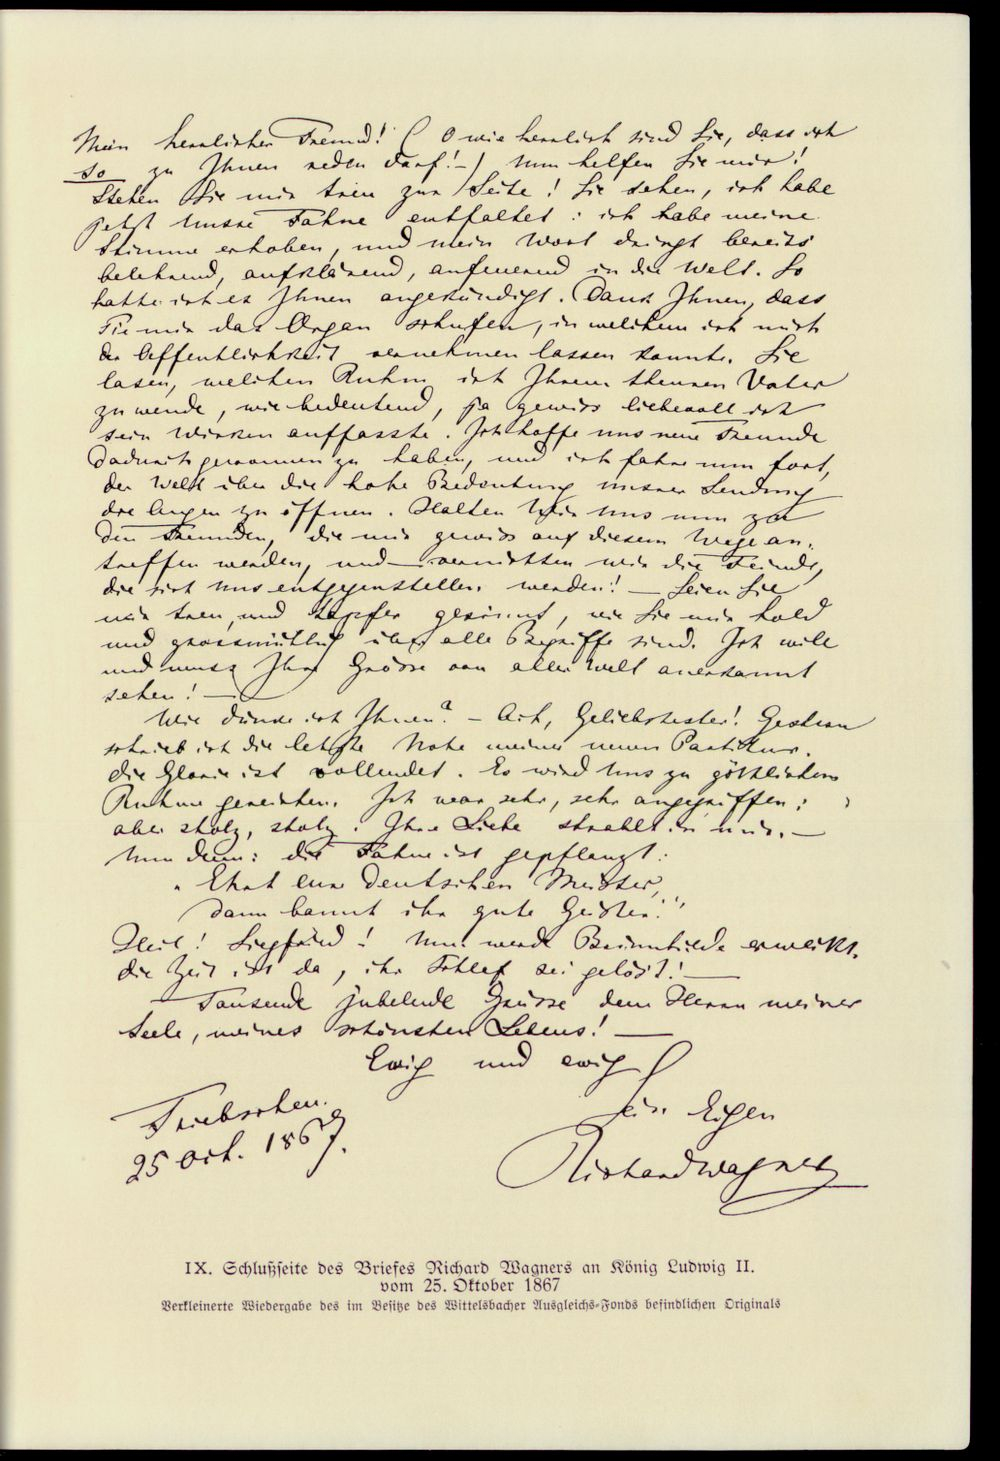 Mein herrlicher Freund! (O wie herrlich sind Sie, dass ich
so zu Ihnen reden darf! –) Nun helfen Sie mir!
Stehen Sie mir treu zur Seite! Sie sehen, ich habe
jetzt unsre Fahne entfaltet: ich habe meine
Stimme erhoben, und mein Wort dringt bereits
belehrend, aufklärend, anfeuernd in die Welt. So
hatte ich es Ihnen angekündigt. Dank Ihnen, dass
Sie mir das Organ schufen, in welchem ich mich
der Oeffentlichkeit vernehmen lassen konnte. Sie
lasen, welchen Ruhm ich Ihrem theuren Vater
zuwende, wie bedeutend, ja gewiss liebevoll ich
sein Wirken auffasste. Ich hoffe uns neue Freunde
dadurch gewonnen zu haben, und ich fahre nun fort,
der Welt über die hohe Bedeutung unsrer Sendung
die Augen zu öffnen. Halten Wir uns nun zu
den Freunden, die wir gewiss auf diesem Wege an-
treffen werden, und – vernichten wir die Feinde,
die sich uns entgegenstellen werden! – Seien Sie
mir treu, und tapfer gesinnt, wie Sie mir hold
und grossmüthig über alle Begriffe sind. Ich will
und muss Ihre Grösse von aller Welt anerkannt
sehen! –
Wie dünke ich Ihnen? – Ach, Geliebtester! Gestern
schrieb ich die letzte Note meiner neuen Partitur.
die Glorie ist vollendet. Es wird Uns zu göttlichem
Ruhme gereichen. Ich war sehr, sehr angegriffen;
aber stolz, stolz! Ihre Liebe strahlt in mir. –
Nun denn: die Fahne ist gepflanzt:
„Ehrt eure Deutschen Meister,
dann bannt ihr gute Geister!"
Heil! Siegfried! Nun werde Brünnhilde erweckt.
die Zeit ist da, ihr Schlaf sei gelöst! –
Tausende jubelnde Grüsse dem Herrn meiner
Seele, meines schönsten Lebens! –
Ewig und ewig
Sein Eigen
Triebschen.
25 Oct. 1867.
Richard Wagner
IX. Schlußseite des Briefes Richard Wagners an König Ludwig II.
vom 25. Oktober 1867
Verkleinerte Wiedergabe des im Besitze des Wittelsbacher Ausgleichs-Fonds befindlichen Originals